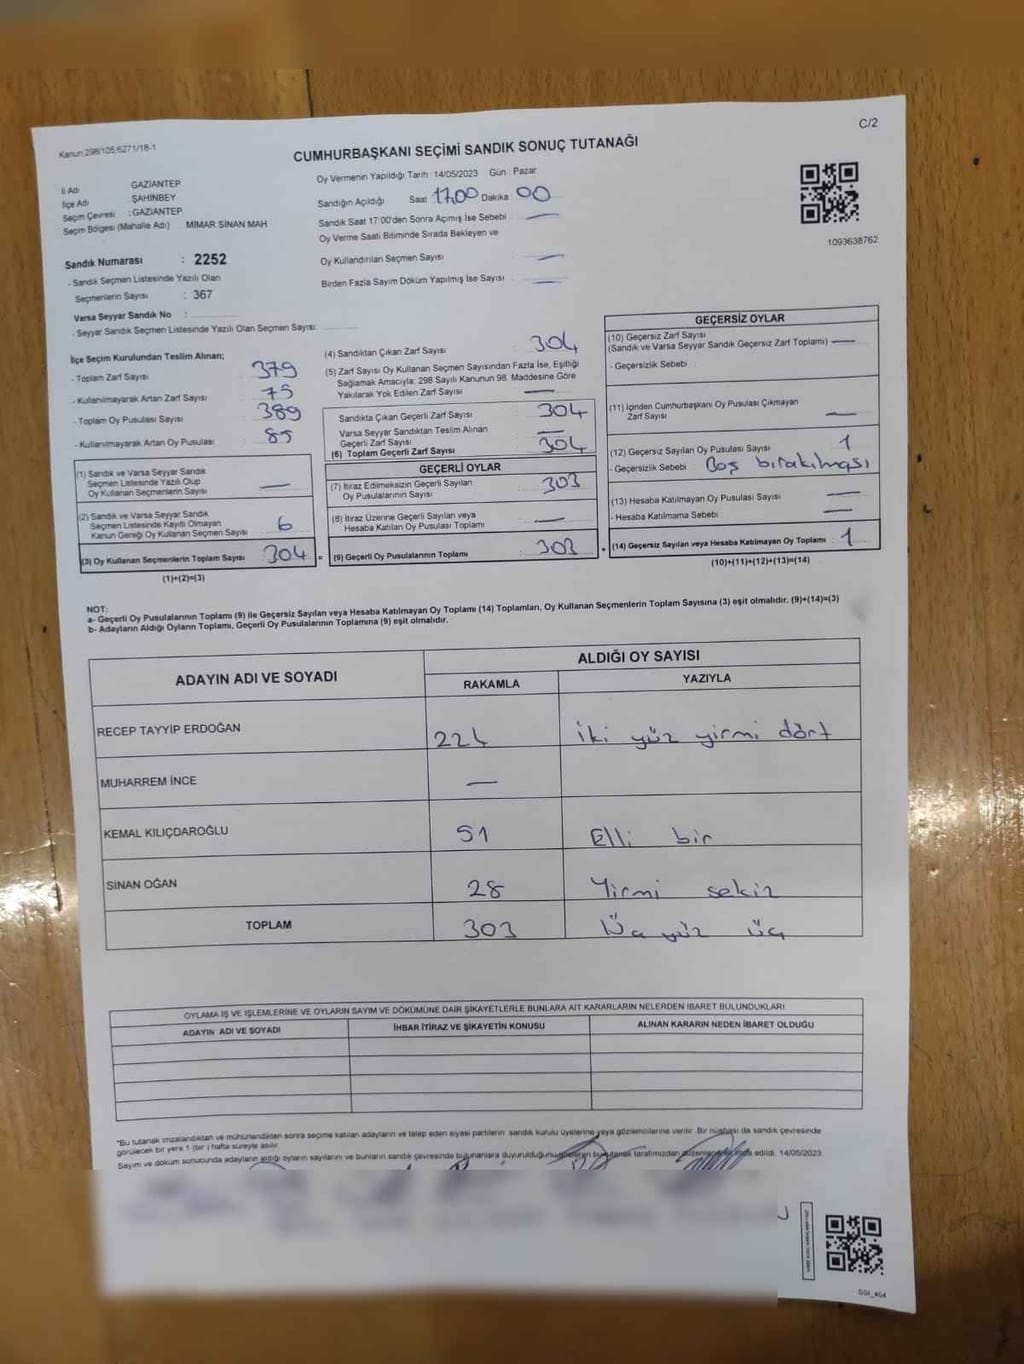 C/2
Kanun:298/105,6271/18-1
CUMHURBAŞKANI SEÇİMİ SANDIK SONUÇ TUTANAĞI
İl Adı GAZİANTEP
İlçe Adı ŞAHİNBEY
Seçim Çevresi : GAZİANTEP
Seçim Bölgesi (Mahalle Adı) MİMAR SİNAN MAH
Sandık Numarası : 2252
- Sandık Seçmen Listesinde Yazılı Olan
Seçmenlerin Sayısı : 367
Varsa Seyyar Sandık No :
- Seyyar Sandık Seçmen Listesinde Yazılı Olan Seçmen Sayısı:
Oy Vermenin Yapıldığı Tarih 14/05/2023 Gün : Pazar
Sandığın Açıldığı Saat 17.00 Dakika 00
Sandık Saat 17:00'den Sonra Açımış İse Sebebi —
Oy Verme Saati Bitiminde Sırada Bekleyen ve
Oy Kullandırılan Seçmen Sayısı —
Birden Fazla Sayım Döküm Yapılmış İse Sayısı —
1093638762
İlçe Seçim Kurulundan Teslim Alınan;
- Toplam Zarf Sayısı 379
- Kullanılmayarak Artan Zarf Sayısı 75
- Toplam Oy Pusulası Sayısı 389
- Kullanılmayarak Artan Oy Pusulası 85
(1) Sandık ve Varsa Seyyar Sandık
Seçmen Listesinde Yazılı Olup
Oy Kullanan Seçmenlerin Sayısı —
(2) Sandık ve Varsa Seyyar Sandık
Seçmen Listesinde Kayıtlı Olmayan
Kanun Gereği Oy Kullanan Seçmen Sayısı 6
(3) Oy Kullanan Seçmenlerin Toplam Sayısı 304 =
(1)+(2)=(3)
(4) Sandıktan Çıkan Zarf Sayısı 304
(5) Zarf Sayısı Oy Kullanan Seçmen Sayısından Fazla İse, Eşitliği
Sağlamak Amacıyla; 298 Sayılı Kanunun 98. Maddesine Göre
Yakılarak Yok Edilen Zarf Sayısı —
Sandıkta Çıkan Geçerli Zarf Sayısı 304
Varsa Seyyar Sandıktan Teslim Alınan
Geçerli Zarf Sayısı —
(6) Toplam Geçerli Zarf Sayısı 304
GEÇERLİ OYLAR
(7) İtiraz Edilmeksizin Geçerli Sayılan
Oy Pusulalarının Sayısı 303
(8) İtiraz Üzerine Geçerli Sayılan veya
Hesaba Katılan Oy Pusulası Toplamı —
(9) Geçerli Oy Pusulalarının Toplamı 303 +
GEÇERSİZ OYLAR
(10) Geçersiz Zarf Sayısı
(Sandık ve Varsa Seyyar Sandık Geçersiz Zarf Toplamı) —
- Geçersizlik Sebebi
(11) İçinden Cumhurbaşkanı Oy Pusulası Çıkmayan
Zarf Sayısı —
(12) Geçersiz Sayılan Oy Pusulası Sayısı 1
- Geçersizlik Sebebi Boş bırakılması
(13) Hesaba Katılmayan Oy Pusulası Sayısı —
- Hesaba Katılmama Sebebi —
(14) Geçersiz Sayılan veya Hesaba Katılmayan Oy Toplamı : 1
(10)+(11)+(12)+(13)=(14)
NOT:
a- Geçerli Oy Pusulalarının Toplamı (9) ile Geçersiz Sayılan veya Hesaba Katılmayan Oy Toplamı (14) Toplamları, Oy Kullanan Seçmenlerin Toplam Sayısına (3) eşit olmalıdır. (9)+(14)=(3)
b- Adayların Aldığı Oyların Toplamı, Geçerli Oy Pusulalarının Toplamına (9) eşit olmalıdır.
ADAYIN ADI VE SOYADI ALDIĞI OY SAYISI
RAKAMLA YAZIYLA
RECEP TAYYİP ERDOĞAN 224 iki yüz yirmi dört
MUHARREM İNCE —
KEMAL KILIÇDAROĞLU 51 Elli bir
SİNAN OĞAN 28 Yirmi sekiz
TOPLAM 303 Üç yüz üç
OYLAMA İŞ VE İŞLEMLERİNE VE OYLARIN SAYIM VE DÖKÜMÜNE DAİR ŞİKAYETLERLE BUNLARA AİT KARARLARIN NELERDEN İBARET BULUNDUKLARI
ADAYIN ADI VE SOYADI İHBAR İTİRAZ VE ŞİKAYETİN KONUSU ALINAN KARARIN NEDEN İBARET OLDUĞU
*Bu tutanak imzalandıktan ve mühürlendikten sonra seçime katılan adayların ve talep eden siyasi partilerin sandık kurulu üyelerine veya gözlemcilerine verilir. Bir nüshası da sandık çevresinde
görülecek bir yere 1 (bir) hafta süreyle asılır.
Sayım ve döküm sonucunda adayların aldığı oyların sayılarını ve bunların sandık çevresinde bulunanlara duyurulduğunu tutanak tarafımızdan edildi. 14/05/2023
SSI_404